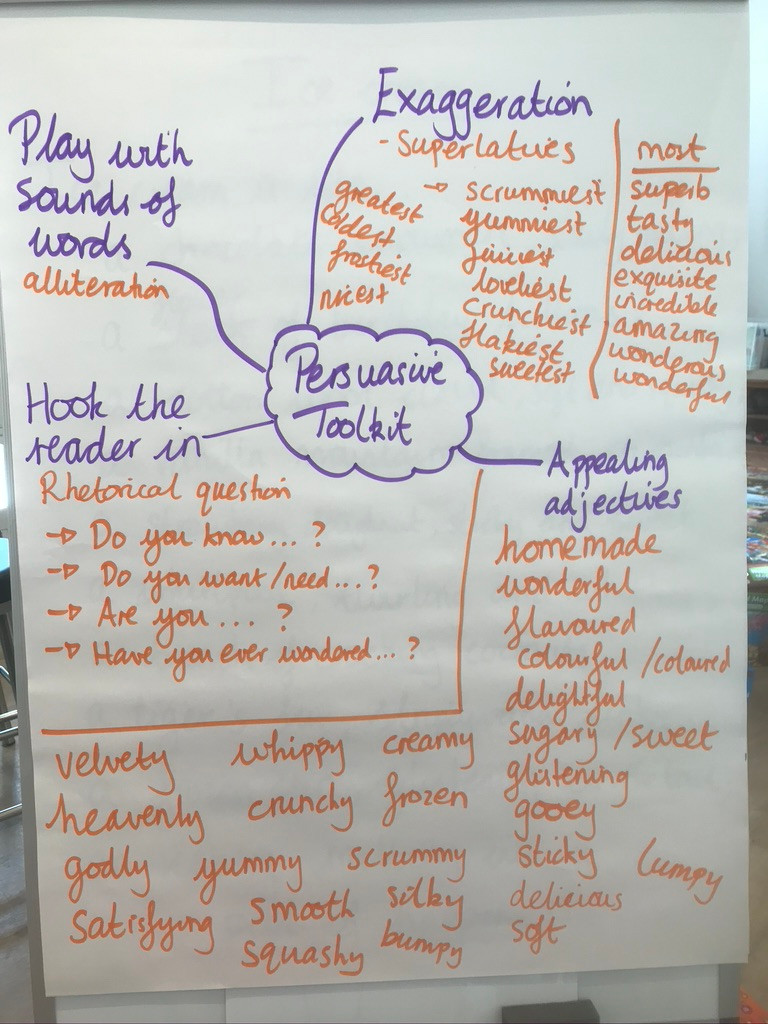 Persuasive
Toolkit
Play with
sounds of
words
alliteration
Exaggeration
- Superlatives
greatest
coldest
frostiest
nicest
→ scrummiest
yummiest
juiciest
loveliest
crunchiest
flakiest
sweetest
most
superb
tasty
delicious
exquisite
incredible
amazing
wonderous
wonderful
Hook the
reader in
Rhetorical question
→ Do you know... ?
→ Do you want/need...?
→ Are you ... ?
→ Have you ever wondered... ?
Appealing
adjectives
homemade
wonderful
flavoured
colourful / coloured
delightful
sugary / sweet
glistening
gooey
sticky lumpy
delicious
soft
velvety whippy creamy
heavenly crunchy frozen
godly yummy scrummy
satisfying smooth silky
squashy bumpy